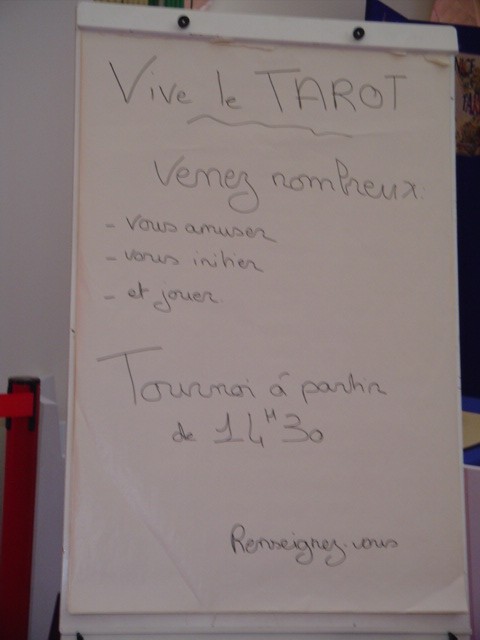 Vive le TAROT
Venez nombreux.
- vous amuser
- vous initier
- et jouer.
Tournoi à partir
de 14H30
Renseignez-vous